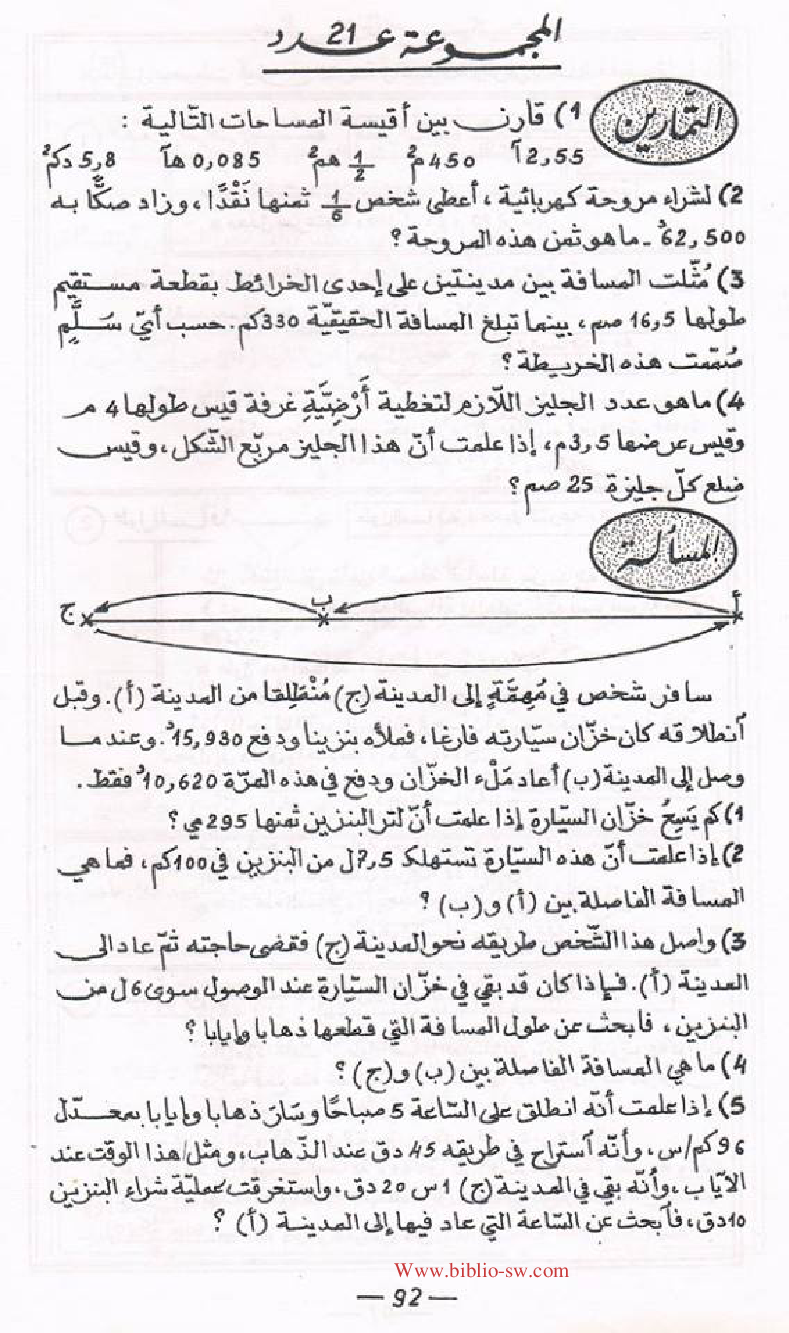 المجموعة عدد 21
التمارين
1) قارن بين أقيسة المساحات التّالية :
2,55 آ 450 م² 1/2 هم² 0,085 هآ 5,8 دكم²
2) لشراء مروحة كهربائية ، أعطى شخص 1/6 ثمنها نَقْدًا ، وزاد صكًّا به
62,500د ـ ماهو ثمن هذه المروحة ؟
3) مُثّلت المسافة بين مدينتين على إحدى الخرائط بقطعة مستقيم
طولها 16,5 صم ، بينما تبلغ المسافة الحقيقيّة 330كم. حسب أيّ سُلَّمٍ
صُمّمت هذه الخريطة ؟
4) ماهو عدد الجليز اللّازم لتغطية أَرْضِيَّةِ غرفة قيس طولها 4 م
وقيس عرضها 3,5م ، إذا علمت أنّ هذا الجليز مربّع الشّكل ، وقيس
ضلع كلّ جليزة 25 صم ؟
المسألة
أ ب ج
سافر شخص في مُهِمَّةٍ إلى المدينة (ج) مُنْطَلِقا من المدينة (أ). وقبل
آنطلاقه كان خزّان سيّارته فارغا ، فملأه بنزينا ودفع 15,930د. وعندما
وصل إلى المدينة (ب) أعاد مَلْء الخزّان ودفع في هذه المرّة 10,620د فقط.
1) كم يَسَعُ خزّان السيّارة إذا علمت أنّ لتر البنزين ثمنها 295مي ؟
2) إذا علمت أنّ هذه السيّارة تستهلك 7,5ل من البنزين في 100كم ، فما هي
المسافة الفاصلة بين (أ) و(ب) ؟
3) واصل هذا الشّخص طريقه نحو المدينة (ج) فقضى حاجته ثمّ عاد الى
المدينة (أ). فإذا كان قد بقي في خزّان السيّارة عند الوصول سوى 6ل من
البنزين ، فآبحث عن طول المسافة التي قطعها ذهابا وإيابا ؟
4) ما هي المسافة الفاصلة بين (ب) و(ج) ؟
5) إذا علمت أنّه انطلق على السّاعة 5 صباحًا وسَارَ ذهابا وإيابا بمعدّل
96كم/س ، وأنّه آستراح في طريقه 45 دق عند الذّهاب ، ومثل هذا الوقت عند
الآياب ، وأنّه بقي في المدينة (ج) 1س 20دق ، واستغرقت عمليّة شراء البنزين
10دق ، فآبحث عن السّاعة التي عاد فيها إلى المدينة (أ) ؟
Www.biblio-sw.com
— 92 —